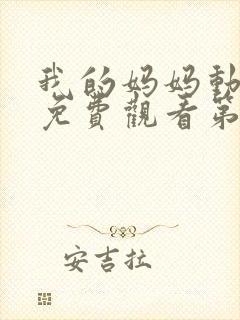 我的妈妈動
免費觀看第
安吉拉